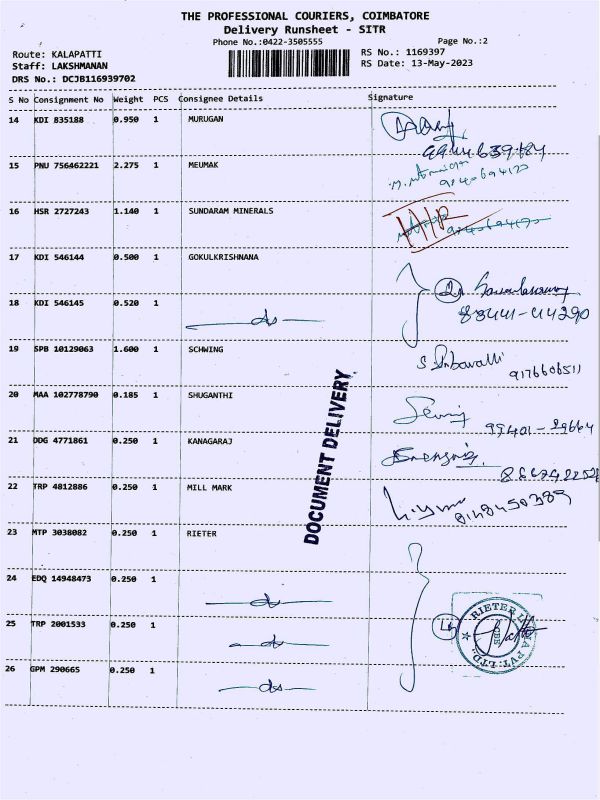 THE PROFESSIONAL COURIERS, COIMBATORE
Delivery Runsheet - SITR
Phone No.:0422-3505555 Page No.:2
Route: KALAPATTI RS No.: 1169397
Staff: LAKSHMANAN RS Date: 13-May-2023
DRS No.: DCJB116939702
S No Consignment No Weight PCS Consignee Details Signature
14 KDI 835188 0.950 1 MURUGAN
15 PNU 756462221 2.275 1 MEUMAK
16 HSR 2727243 1.140 1 SUNDARAM MINERALS
17 KDI 546144 0.500 1 GOKULKRISHNANA
18 KDI 546145 0.520 1 do
88441-44290
19 SPB 10129063 1.600 1 SCHWING
9176606511
20 MAA 102778790 0.185 1 SHUGANTHI
99401-29664
21 DDG 4771861 0.250 1 KANAGARAJ
22 TRP 4812886 0.250 1 MILL MARK
23 MTP 3038082 0.250 1 RIETER
24 EDQ 14948473 0.250 1 do
25 TRP 2001533 0.250 1 do
26 GPM 290665 0.250 1 do
DOCUMENT DELIVERY
RIETER INDIA PVT. LTD.
CBE